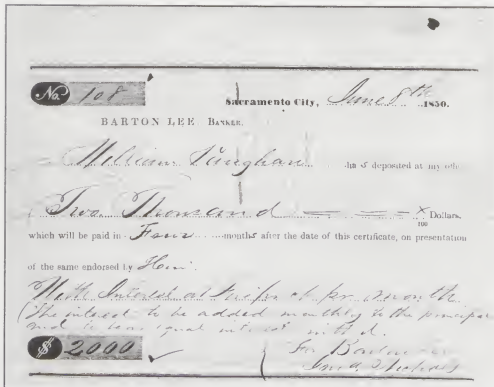 No. 108
Sacramento City, June 8th 1850.
BARTON LEE BANKER.
William Vinghan has deposited at my office
Two Thousand = = x/100 Dollars,
which will be paid in Four months after the date of this certificate, on presentation
of the same endorsed by Him.
With Interest at pr month
(The interest to be added monthly to the principal
and to bear equal interest with it.
$ 2000
For Barton Lee